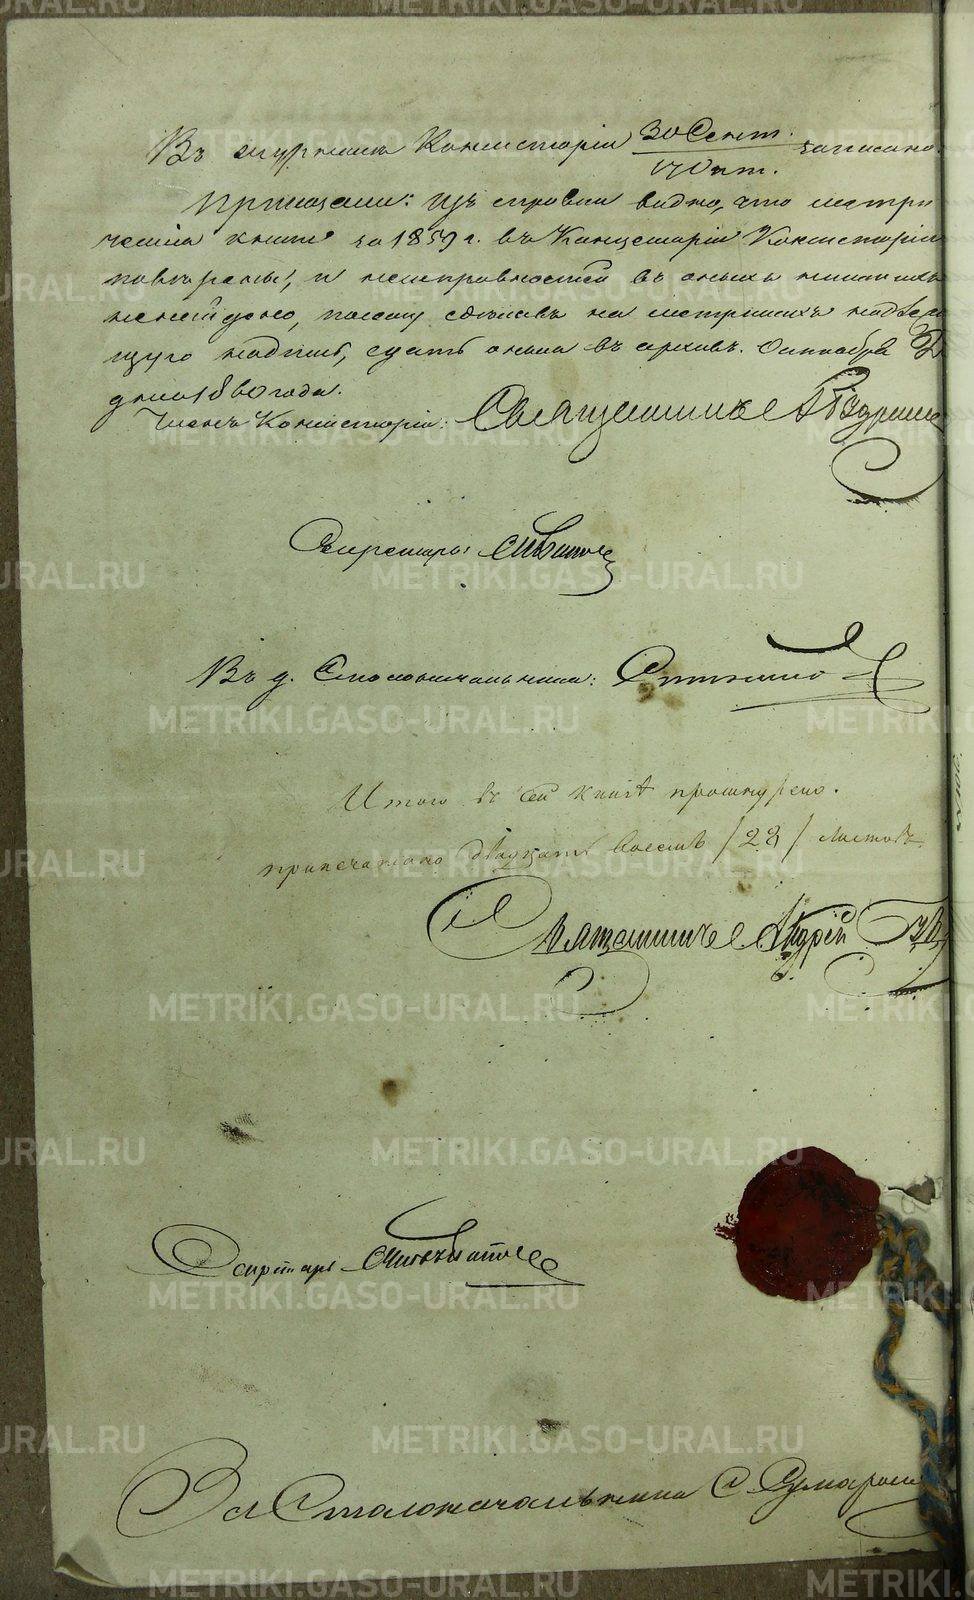 Въ журналѣ Консисторіи 30 Сент. / 17 Окт. записано:
Приказали: Изъ справки видно, что метри
ческія книги за 1859 г. въ Канцеляріи Консисторіи
повѣрены, и неисправностей въ оныхъ книгахъ
ненайдено, посему сдѣлавъ на метрикахъ надлежа
щую надпись, сдать оныя въ архивъ. Октября
дня 1860 года.
Членъ Консисторіи: Священникъ Андрей
Секретарь:
Въ д. Столоначальника:
Итого въ сей книгѣ прошнурено.
припечатано двадцать восемь /28/ листовъ
Священникъ Андрей
Секретарь
За Столоначальника
METRIKI.GASO-URAL.RU